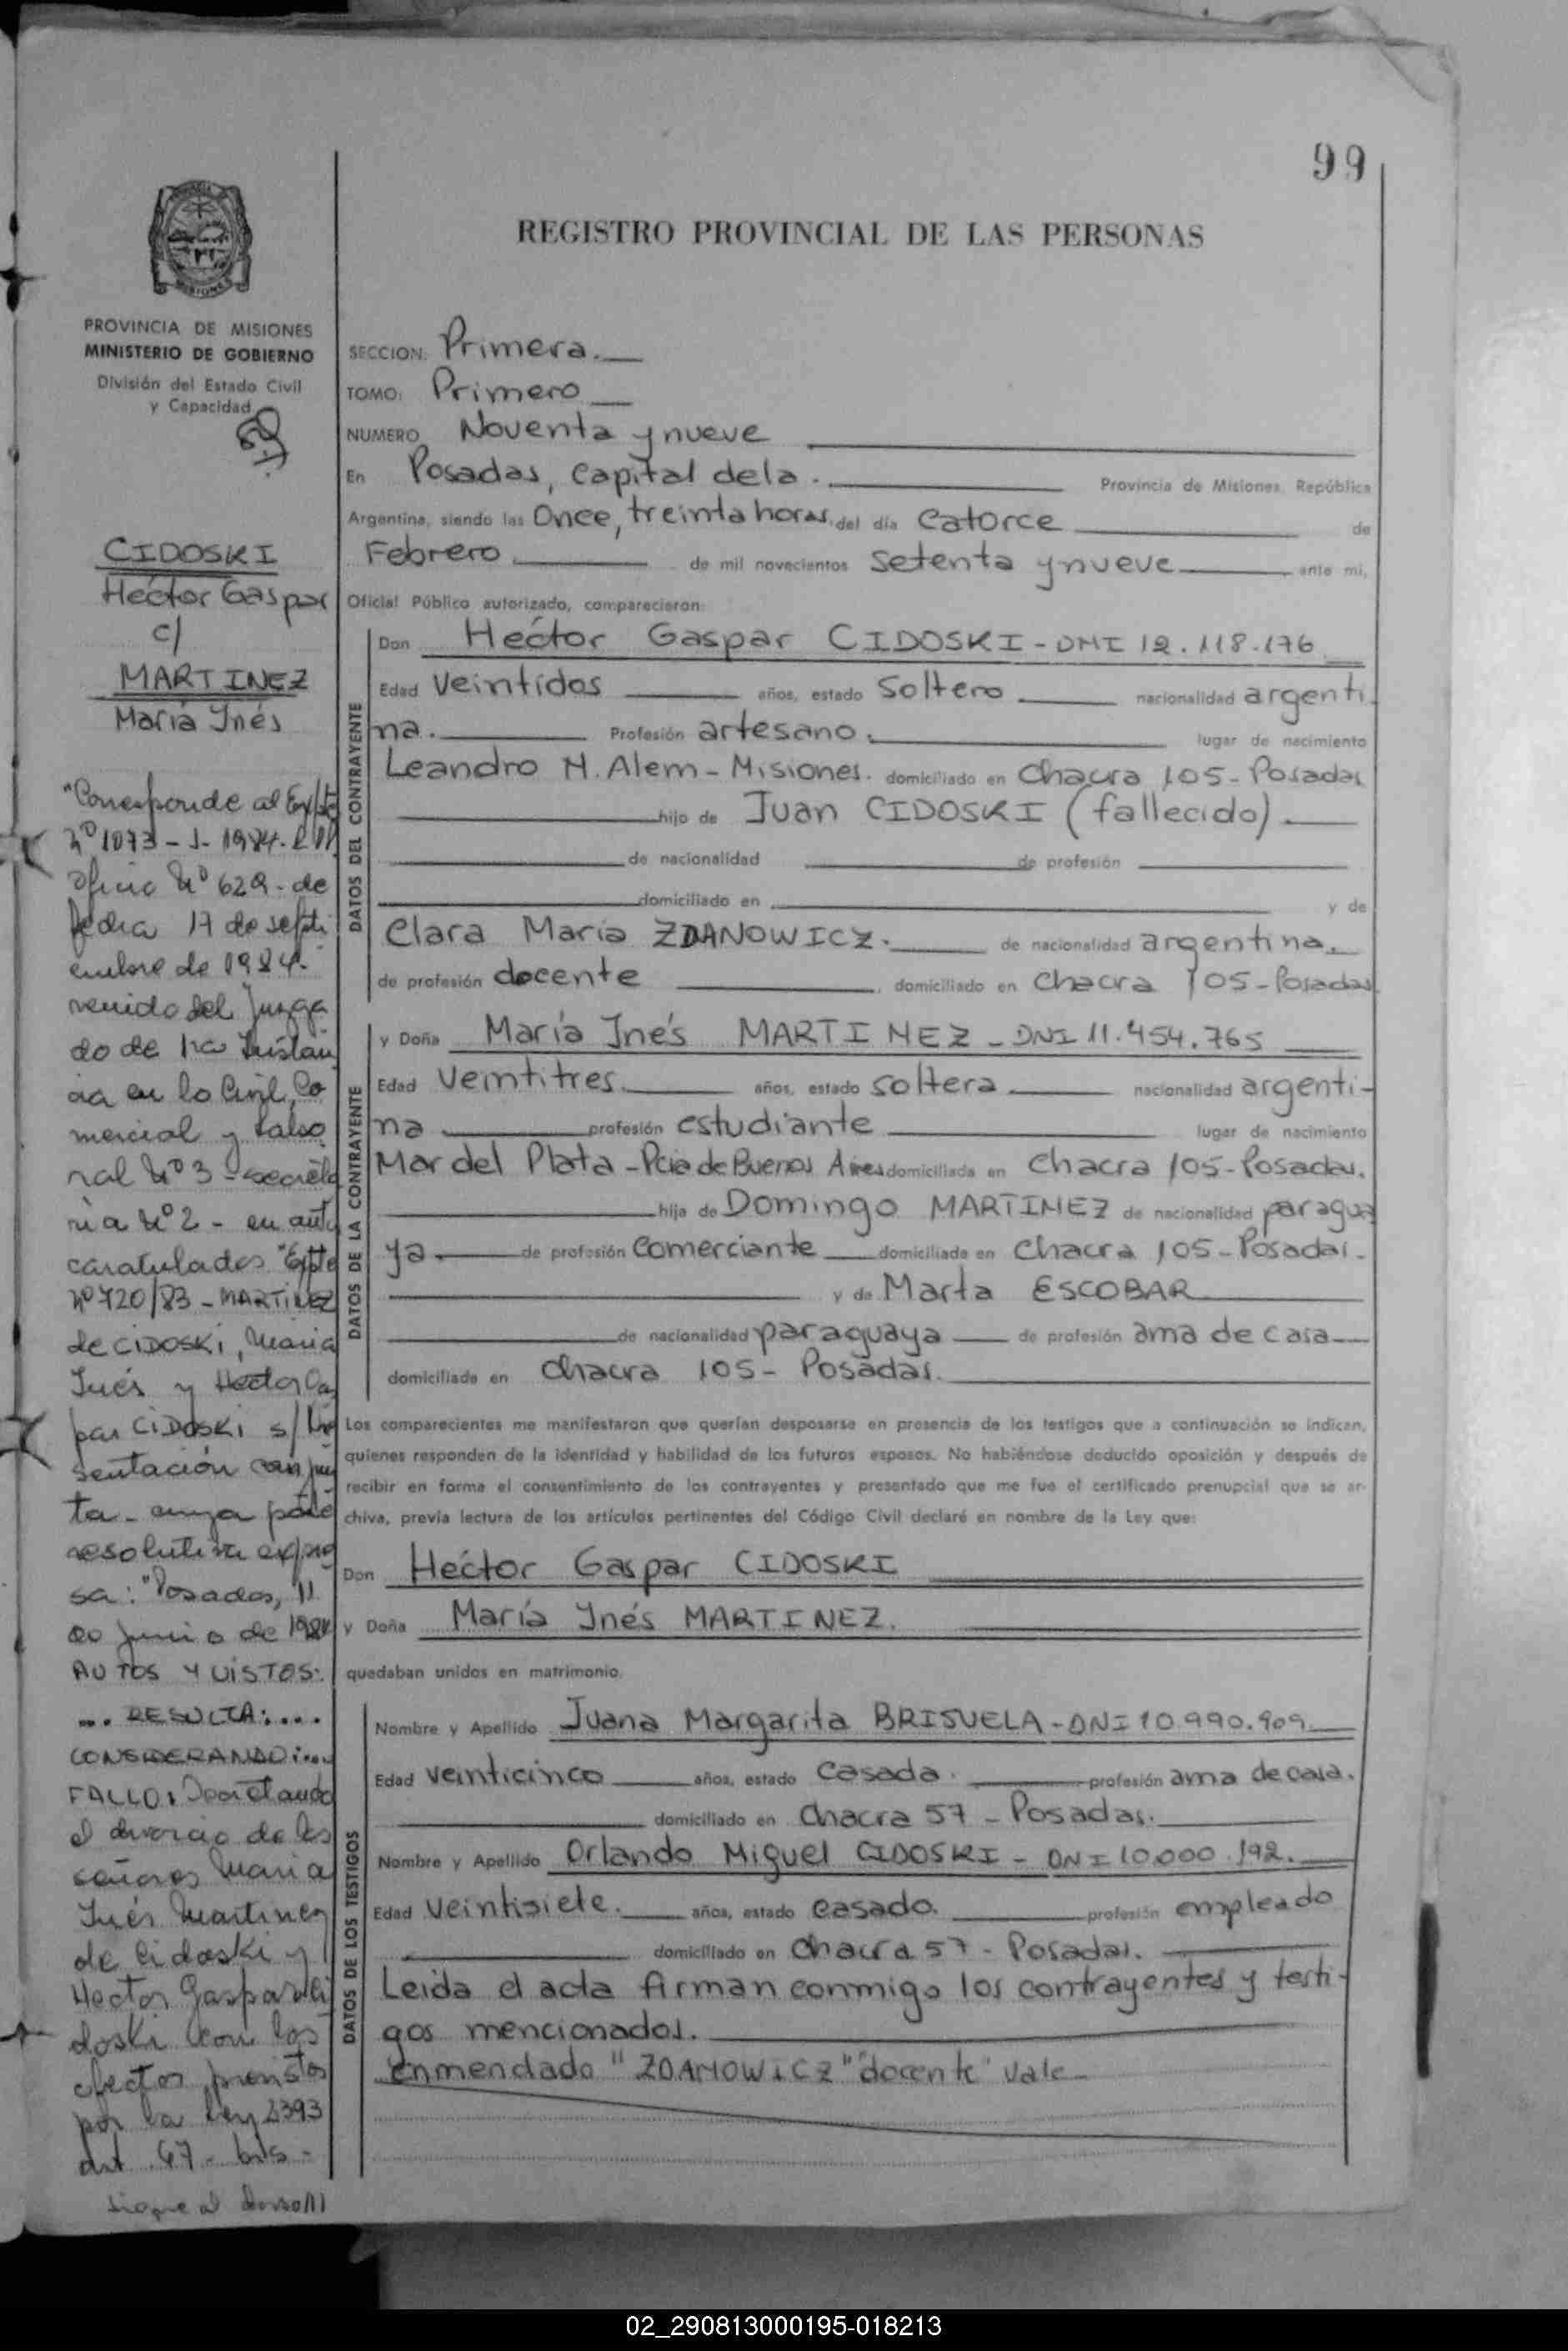 99
REGISTRO PROVINCIAL DE LAS PERSONAS
PROVINCIA DE MISIONES
MINISTERIO DE GOBIERNO
División del Estado Civil
y Capacidad
CIDOSKI
Héctor Gaspar
c/
MARTINEZ
María Inés
"Corresponde al Expte
Nº 1073 - J - 1984 -
Oficio Nº 629 - de
fecha 17 de septi
embre de 1984.
venido del Juzga
do de 1ra Instan
cia en lo Civil, Co
mercial y Labo
ral Nº 3 - secreta
ria Nº 2 - en autos
caratulados "Expte
Nº 720/83 - MARTINEZ
de CIDOSKI, Maria
Inés y Hector Gas
par CIDOSKI s/ Pre
sentación conjun
ta - cuya parte
resolutiva expre
sa: "Posadas, 11
de Junio de 1984
AUTOS Y VISTOS:.
... RESULTA:...
CONSIDERANDO:...
FALLO: Decretando
el divorcio de los
señores Maria
Inés Martinez
de Cidoski y
Hector Gaspar Ci
doski con los
efectos previstos
por la ley 2393
art 67 - bis -
sigue al dorso///
SECCION: Primera.
TOMO: Primero
NUMERO Noventa y nueve
En Posadas, capital de la. Provincia de Misiones, República
Argentina, siendo las Once, treinta horas, del día catorce de
Febrero de mil novecientos setenta y nueve ante mi,
Oficial Público autorizado, comparecieron:
DATOS DEL CONTRAYENTE
Don Héctor Gaspar CIDOSKI - DNI 12.118.176
Edad Veintidos años, estado Soltero nacionalidad argenti
na. Profesión artesano. lugar de nacimiento
Leandro N. Alem - Misiones. domiciliado en Chacra 105 - Posadas
hijo de Juan CIDOSKI (fallecido)
de nacionalidad de profesión
domiciliado en y de
Clara María ZDANOWICZ. de nacionalidad argentina.
de profesión docente domiciliado en Chacra 105 - Posadas
DATOS DE LA CONTRAYENTE
y Doña María Inés MARTINEZ - DNI 11.454.765
Edad Veintitres. años, estado soltera nacionalidad argenti-
na profesión estudiante lugar de nacimiento
Mar del Plata - Pcia de Buenos Aires domiciliada en Chacra 105 - Posadas.
hija de Domingo MARTINEZ de nacionalidad paragua
ya. de profesión Comerciante domiciliado en Chacra 105 - Posadas.
y de Marta ESCOBAR
de nacionalidad paraguaya de profesión ama de casa
domiciliada en Chacra 105 - Posadas.
Los comparecientes me manifestaron que querían desposarse en presencia de los testigos que a continuación se indican,
quienes responden de la identidad y habilidad de los futuros esposos. No habiéndose deducido oposición y después de
recibir en forma el consentimiento de los contrayentes y presentado que me fue el certificado prenupcial que se ar-
chiva, previa lectura de los artículos pertinentes del Código Civil declaré en nombre de la Ley que:
Don Héctor Gaspar CIDOSKI
y Doña María Inés MARTINEZ.
quedaban unidos en matrimonio.
DATOS DE LOS TESTIGOS
Nombre y Apellido Juana Margarita BRISUELA - DNI 10.990.909
Edad veinticinco años, estado Casada. profesión ama de casa.
domiciliado en Chacra 57 - Posadas.
Nombre y Apellido Orlando Miguel CIDOSKI - DNI 10.000.192.
Edad Veintisiete. años, estado Casado. profesión empleado
domiciliado en Chacra 57 - Posadas.
Leida el acta firman conmigo los contrayentes y testi-
gos mencionados.
Enmendado "ZDANOWICZ" "docente" Vale
02_290813000195-018213